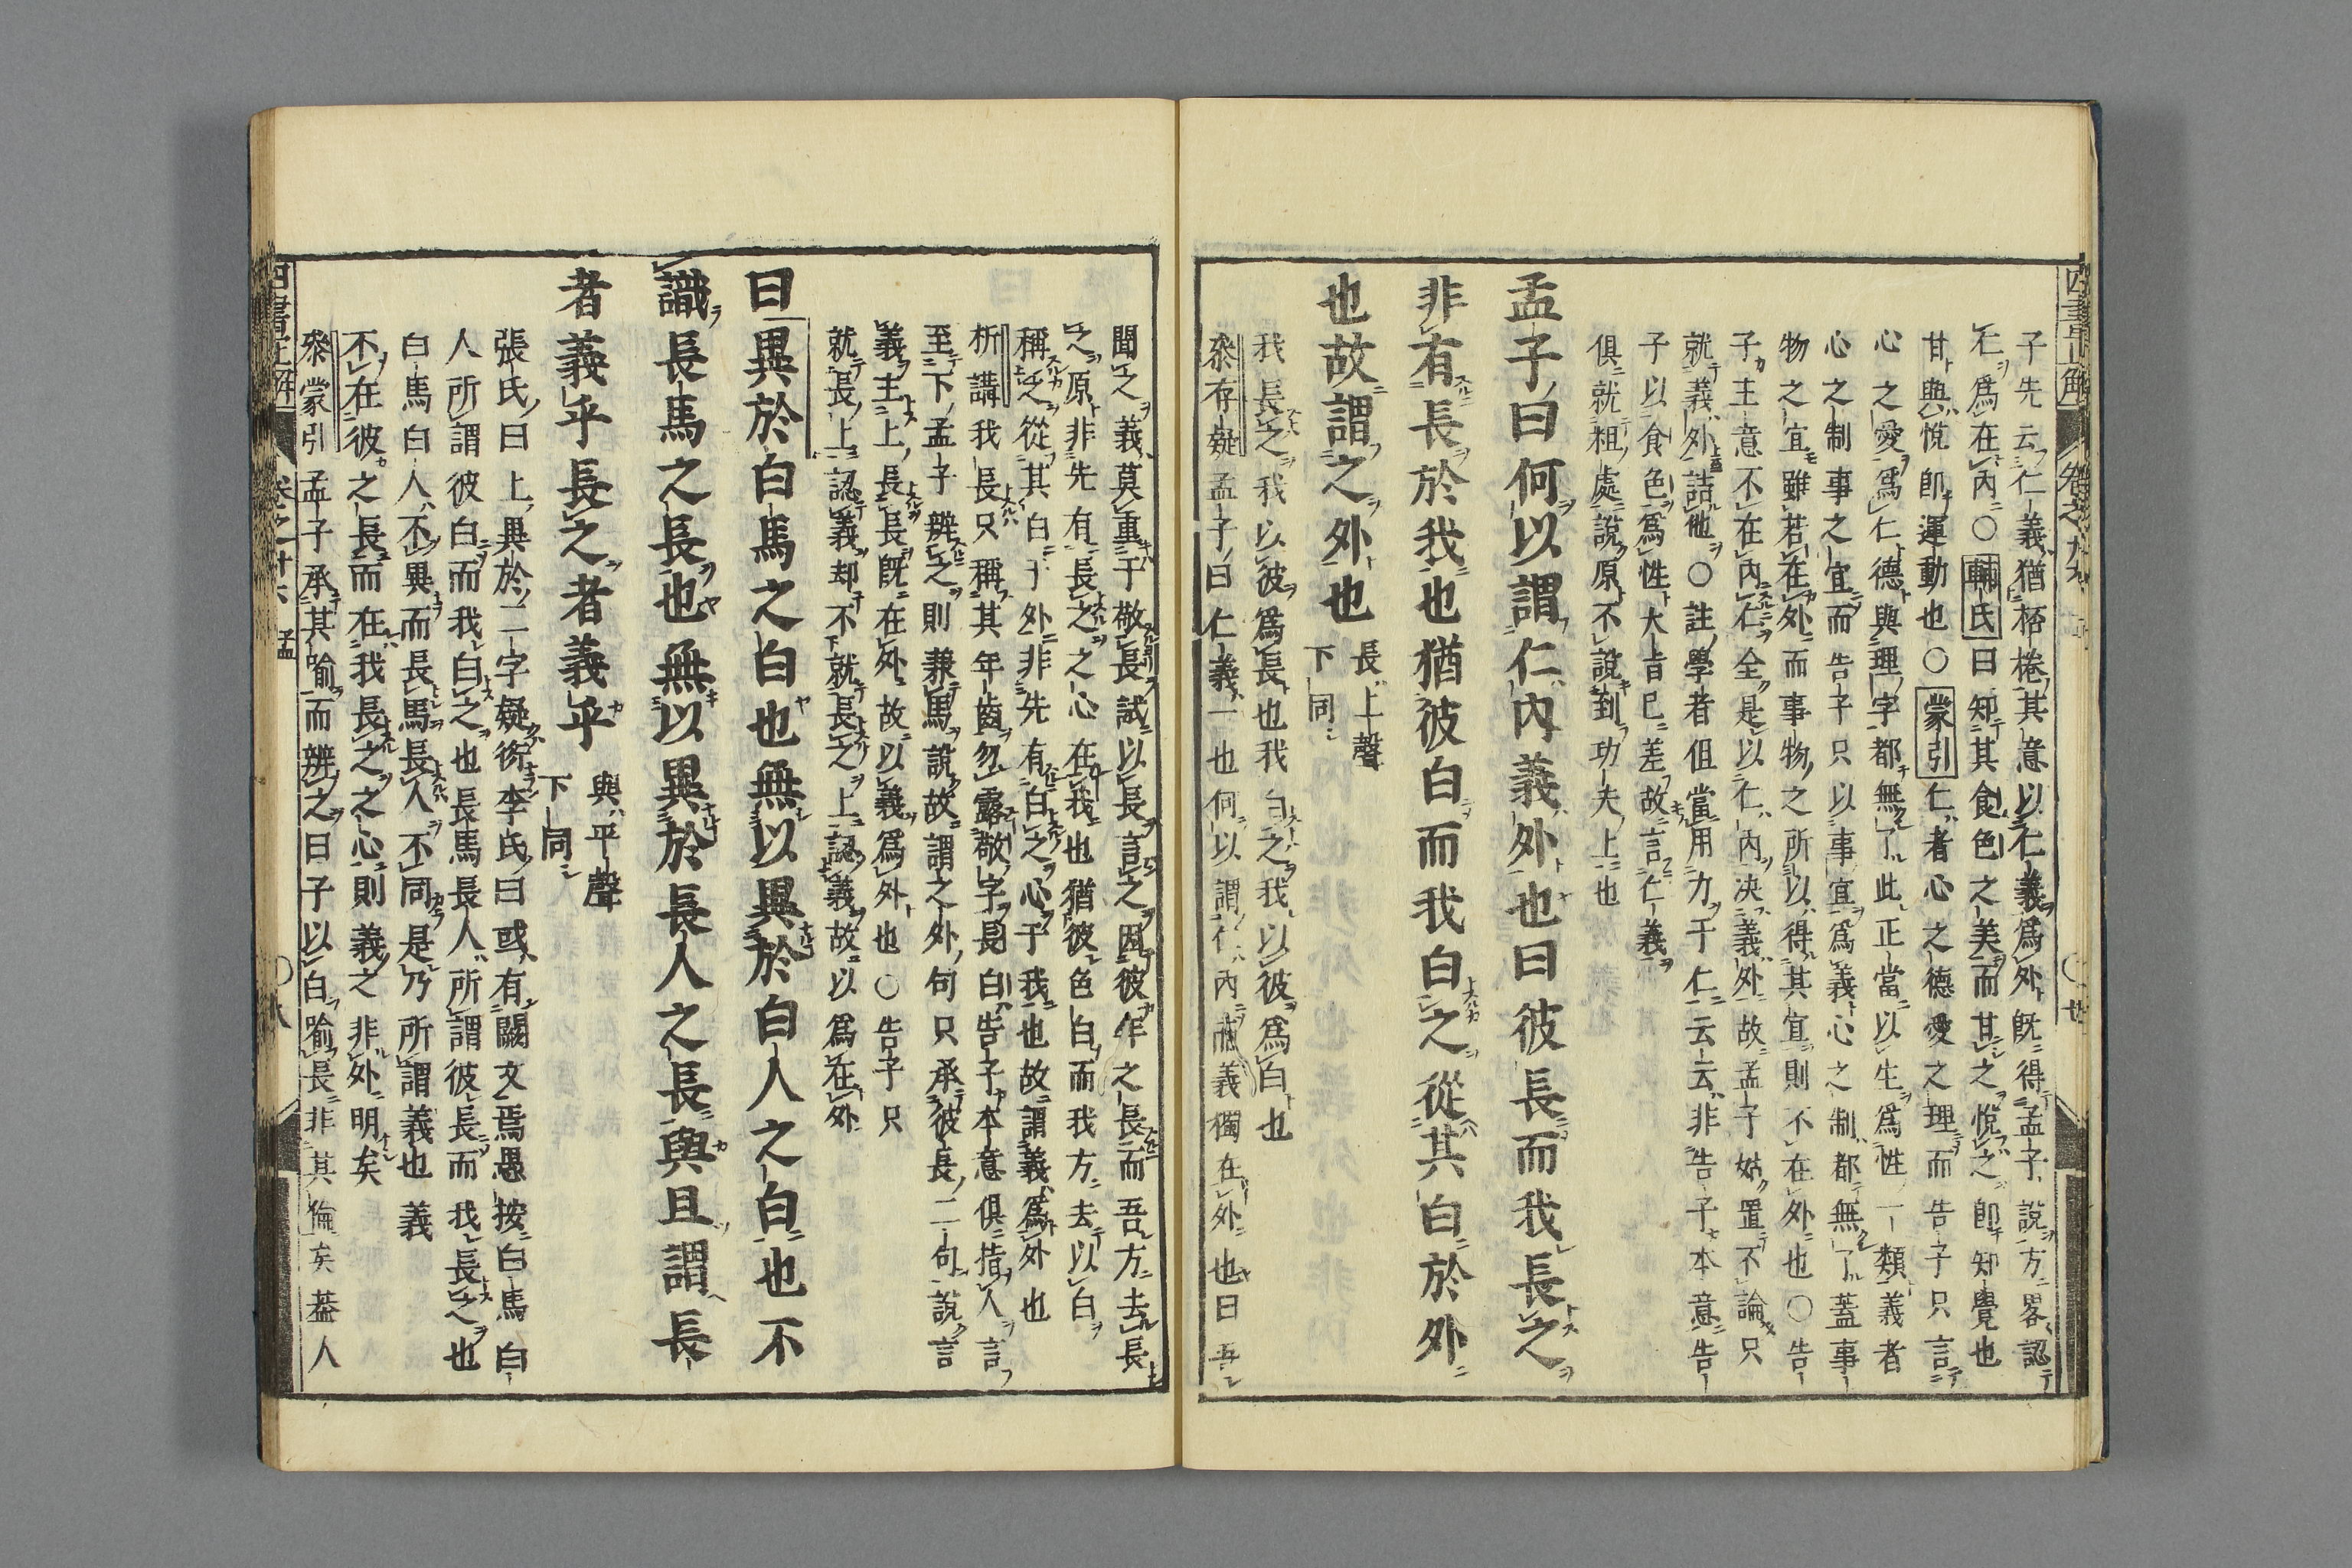 子先云仁義猶桮棬其意以仁義爲外既得孟子說方畧認
仁爲在內○輔氏曰知其食色之美而甘之悅之卽知覺也
甘與悅卽運動也○蒙引仁者心之德愛之理而告子只言
心之愛爲仁德與理字都無了此正當以生爲性一類義者
心之制事之宜而告子只以事宜爲義心之制都無了蓋事
物之宜雖若在外而事物之所以得其宜則不在外也○告
子主意不在內仁全是以仁內決義外故孟子姑置不論只
就義外詰他○註學者但當用力于仁云云非告子本意告
子以食色爲性大旨已差故言仁義
俱就粗處說原不說到功夫上也
孟子曰何以謂仁內義外也曰彼長而我長之
非有長於我也猶彼白而我白之從其白於外
也故謂之外也
長上聲
下同
我長之我以彼爲長也我白之我以彼爲白也
叅存疑孟子曰仁義一也何以謂仁內而義獨在外也曰吾
聞之義莫重于敬長試以長言之因彼年之長而吾方去長
之原非先有長之之心在我也猶彼色白而我方去以白
稱之從其白于外非先有白之之心于我也故謂義爲外也
析講我長只稱其年齒忽露敬字長白告子本意俱指人言
至下孟子辨之則兼馬說故謂之外句只承彼長二句說言
義主上長長既在外故以義爲外也○告子只
就長上認義却不就長之上認義故以爲在外
曰異於白馬之白也無以異於白人之白也不
識長馬之長也無以異於長人之長與且謂長
者義乎長之者義乎
與平聲
下同
張氏曰上異於二字疑衍李氏曰或有闕文焉愚按白馬白
人所謂彼白而我白之也長馬長人所謂彼長而我長之也
白馬白人不異而長馬長人不同是乃所謂義也義
不在彼之長而在我長之之心則義之非外明矣
叅蒙引孟子承其喻而辨之曰子以白喻長非其倫矣蓋人
四書正解
卷之廿六
孟